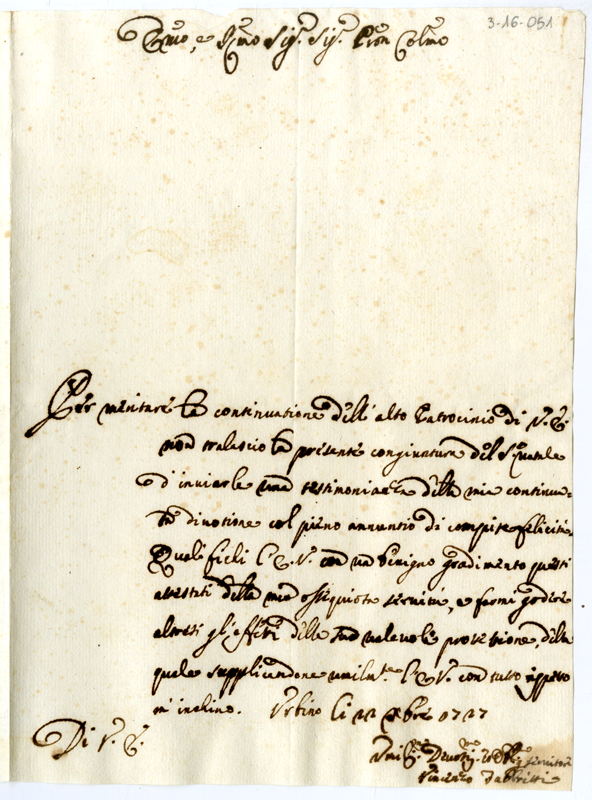 3-16-051
Emo, e Rmo Sig.r Sig.r Pron Colmo
Per meritare la continuatione dell' alto Patrocinio di V. E.
non tralascio la presente congiuntura del S. Natale
d' inviarle una testimonianza della mia continua-
ta divotione col pieno annuntio di compite felicità.
Quali ficli l' E. V. con un benigno gradimento questi
attestati della mia ossequiosa servitù, e farmi godere
altresi gl' effetti della sua valevole protettione, della
quale supplicandone umilm.te l' E. V. con tutto rispetto
m' inchino. Urbino li 22 Xbre 1727
Di V. E.
Umiliss. Devotiss. ed Obl. servitore
Vincenzo Fabbretti